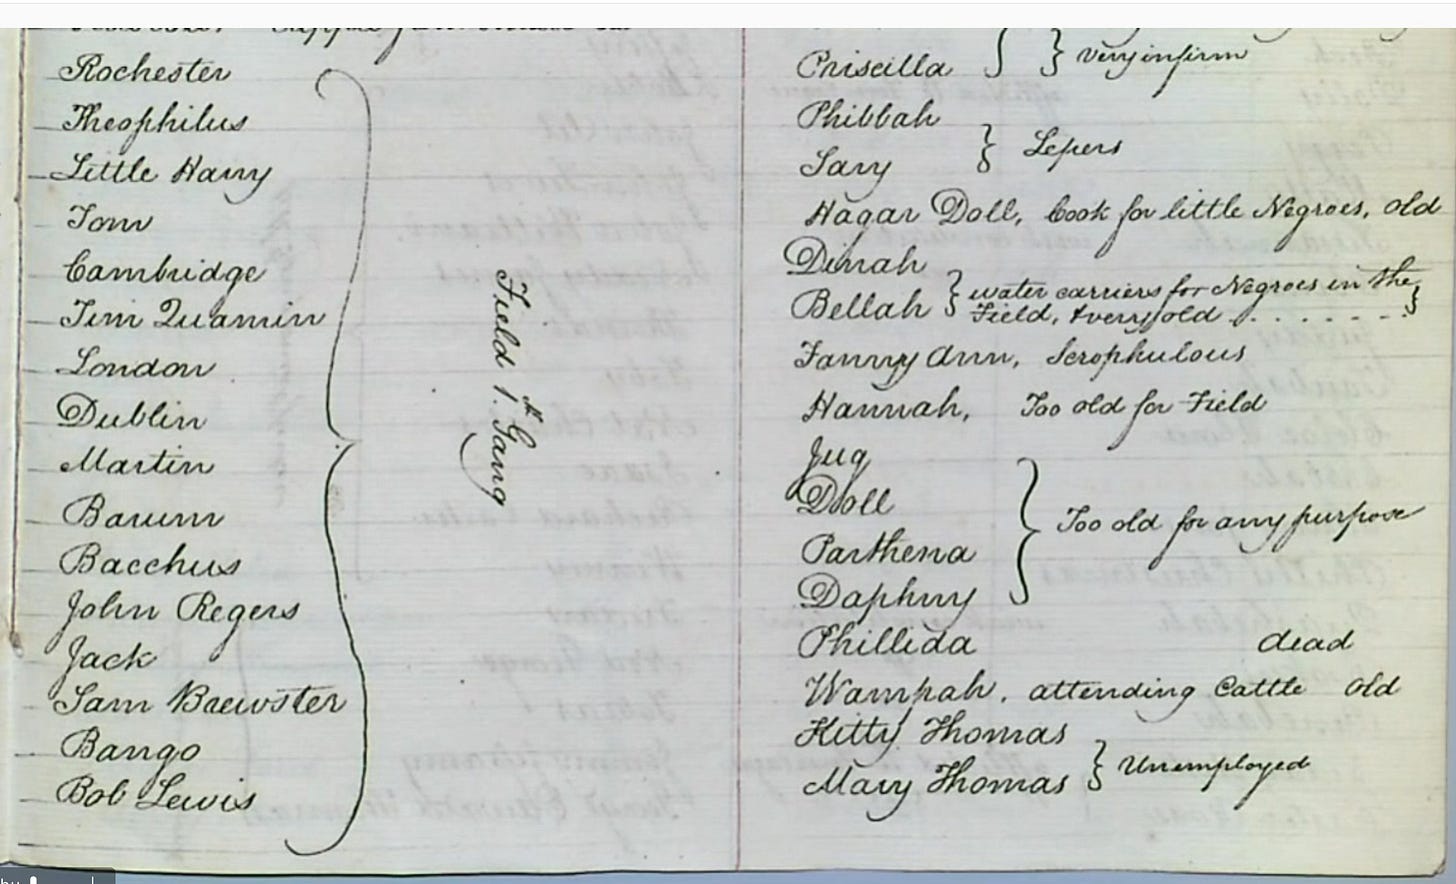 Rochester
Theophilus
Little Harry
Tom
Cambridge
Jim Quamin
London
Dublin
Martin
Barum
Bacchus
John Regers
Jack
Sam Brewster
Bango
Bob Lewis
Field 1.st Gang
Priscilla } } very infirm
Phibbah
Sary } Lepers
Hagar Doll, Cook for little Negroes, old
Dinah
Bellah } water carriers for Negroes in the
Field, & very old
Fanny Ann, Scrophulous
Hannah, Too old for Field
Jug
Doll
Parthena
Daphny
} Too old for any purpose
Phillida dead
Wampah. attending Cattle old
Kitty Thomas
Mary Thomas } Unemployed